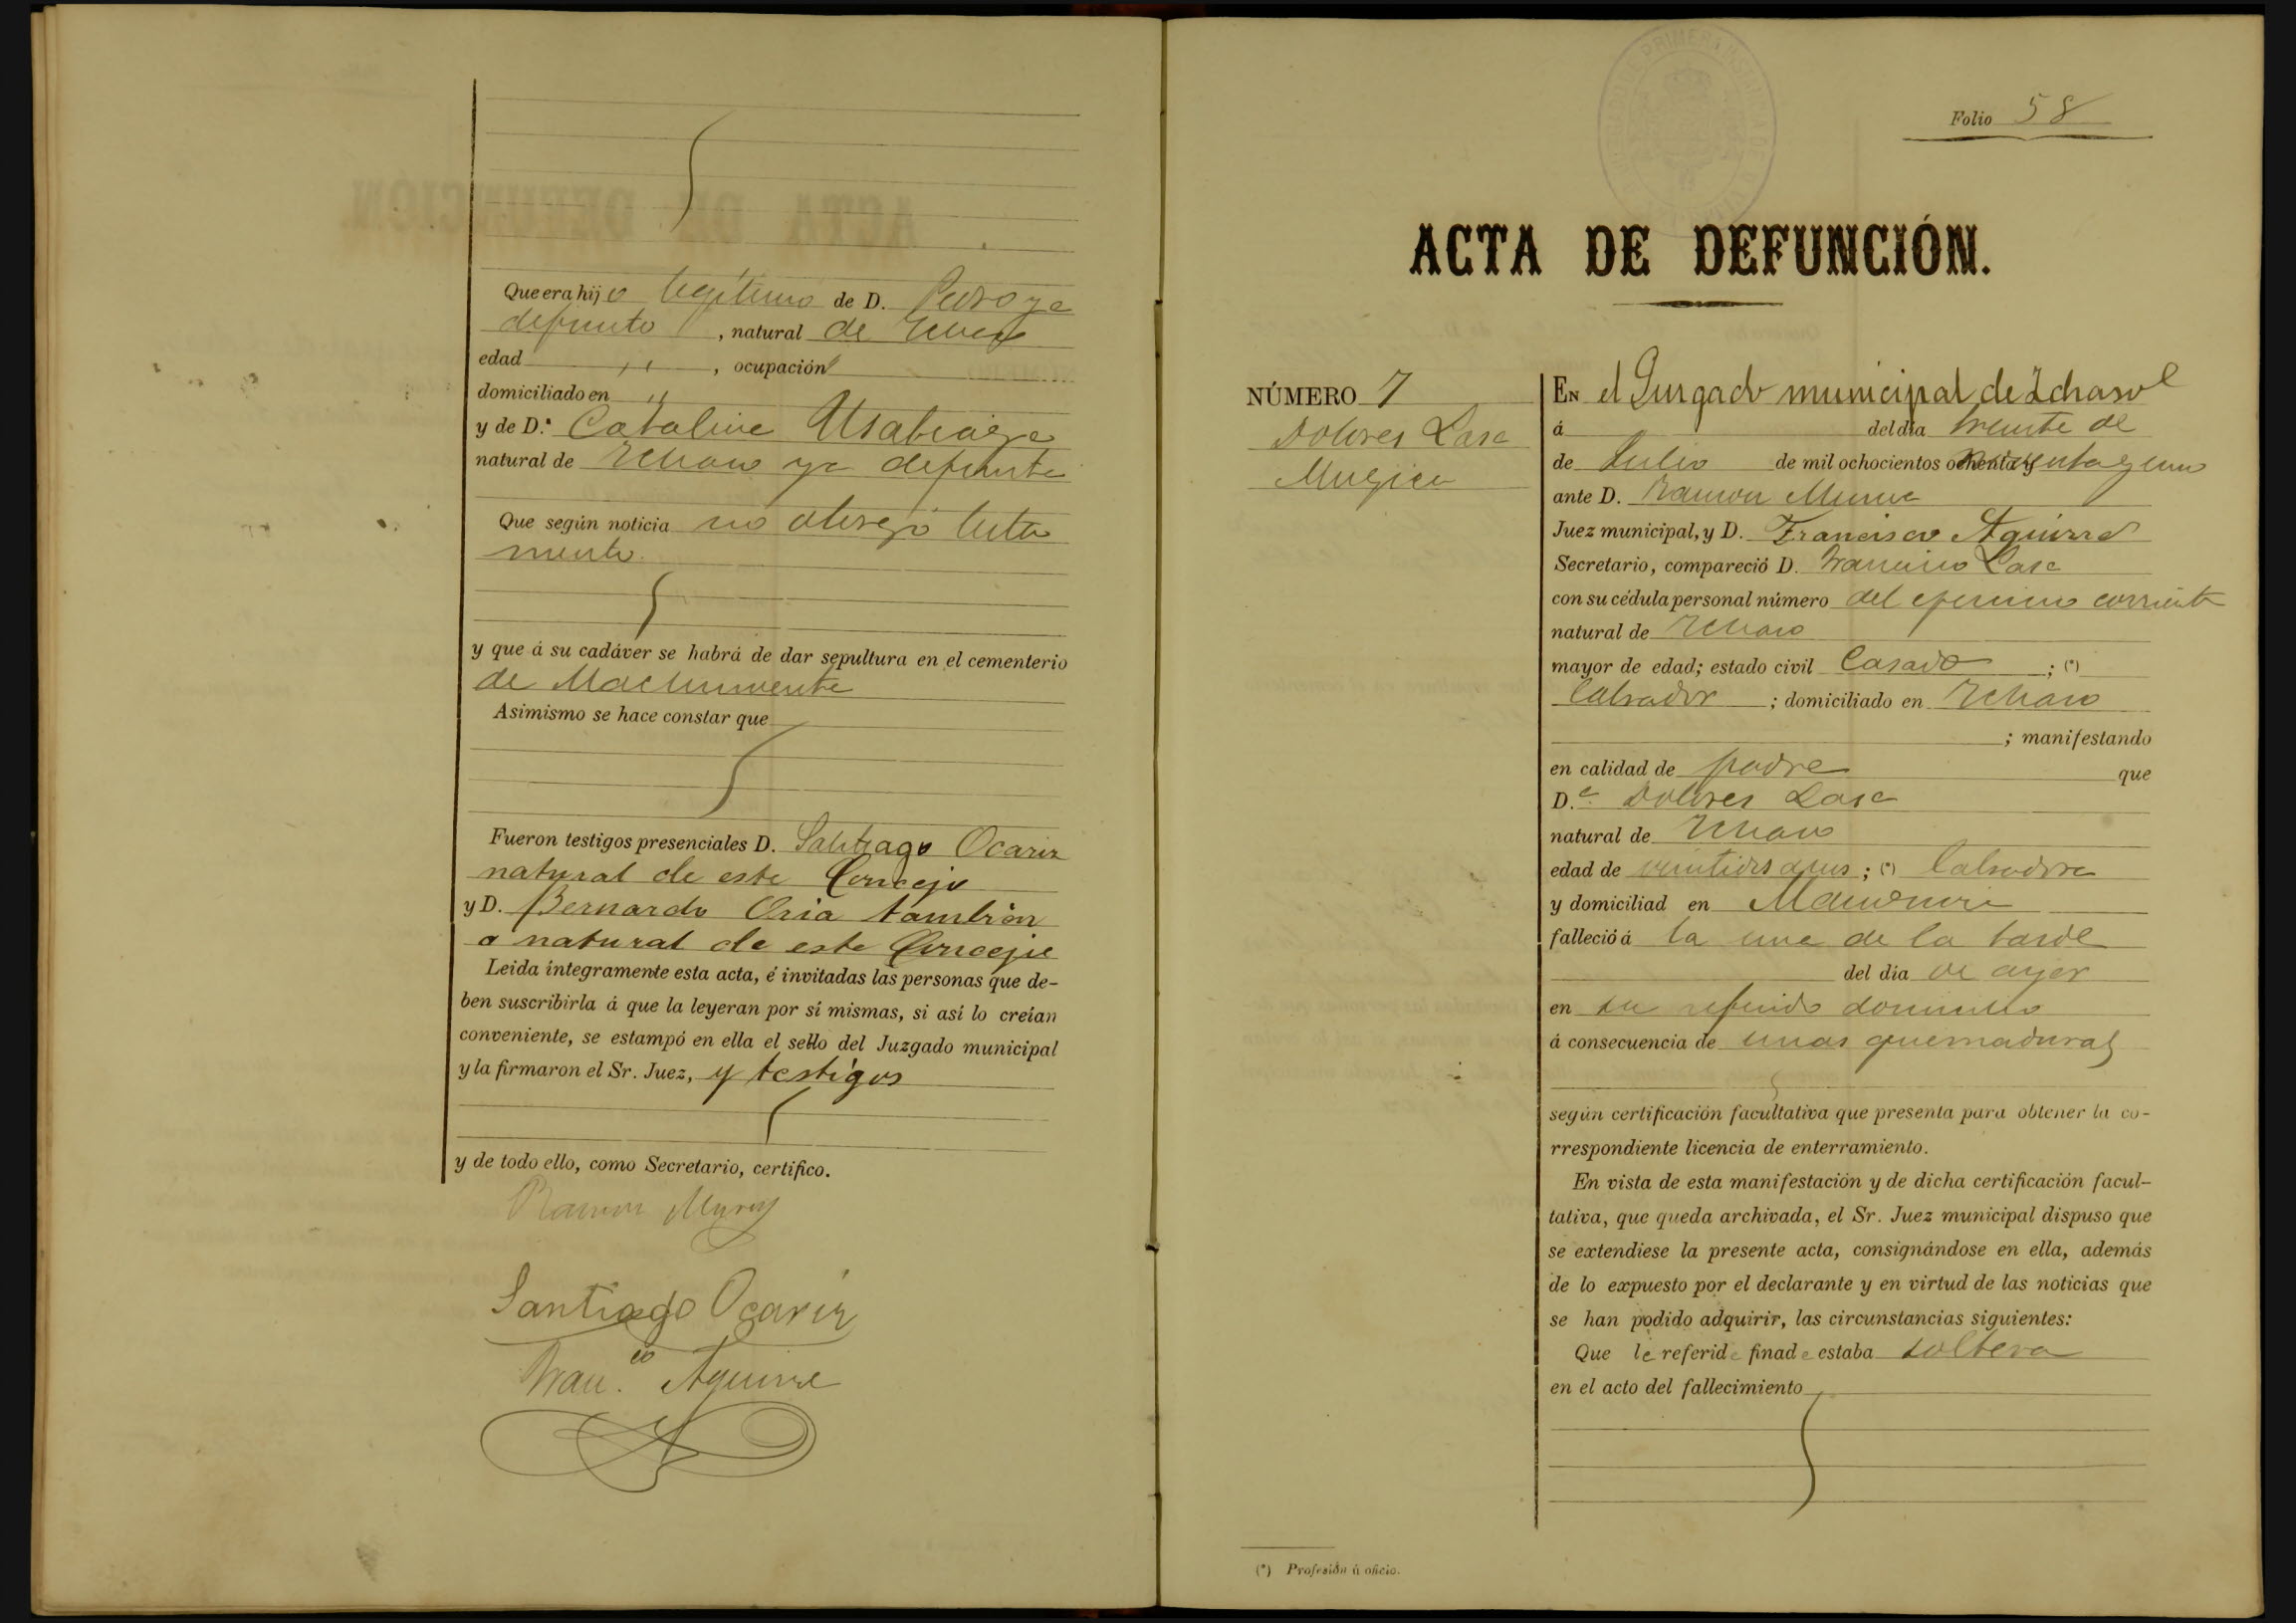 Que era hijo legítimo de D. Pedro ya
defunto, natural de
edad " , ocupación "
domiciliado en "
y de D.ª Catalina Usabiaga
natural de Ichaso ya defunta
Que según noticia no otorgó testa
mento.
y que á su cadáver se habrá de dar sepultura en el cementerio
de
Asimismo se hace constar que
Fueron testigos presenciales D. Santiago Ocariz
natural de este Concejo
y D. Bernardo Oria tambien
natural de este Concejo
Leida íntegramente esta acta, é invitadas las personas que de-
ben suscribirla á que la leyeran por sí mismas, si así lo creían
conveniente, se estampó en ella el sello del Juzgado municipal
y la firmaron el Sr. Juez, y testigos
y de todo ello, como Secretario, certifico.
Ramon
Santiago Ocariz
Fran.co Aguirre
Folio 58
ACTA DE DEFUNCIÓN.
NÚMERO 7
Dolores Lasa
Mugica
EN el Jurgado municipal de Ichaso
á del día treinta de
de Julio de mil ochocientos ochenta y noventa y uno
ante D. Ramon
Juez municipal, y D. Francisco Aguirre
Secretario, compareció D. Francisco Lasa
con su cédula personal número del corriente
natural de Ichaso
mayor de edad; estado civil Casado ; (*)
labrador ; domiciliado en Ichaso
; manifestando
en calidad de padre que
D.a Dolores Lasa
natural de Ichaso
edad de veintidos años ; (*) labradora
y domiciliad en
falleció á la una de la tarde
del día de ayer
en su referido domicilio
á consecuencia de unas quemaduras
según certificación facultativa que presenta para obtener la co-
rrespondiente licencia de enterramiento.
En vista de esta manifestación y de dicha certificación facul-
tativa, que queda archivada, el Sr. Juez municipal dispuso que
se extendiese la presente acta, consignándose en ella, además
de lo expuesto por el declarante y en virtud de las noticias que
se han podido adquirir, las circunstancias siguientes:
Que la referida finada estaba soltera
en el acto del fallecimiento
(*) Profesión ú oficio.